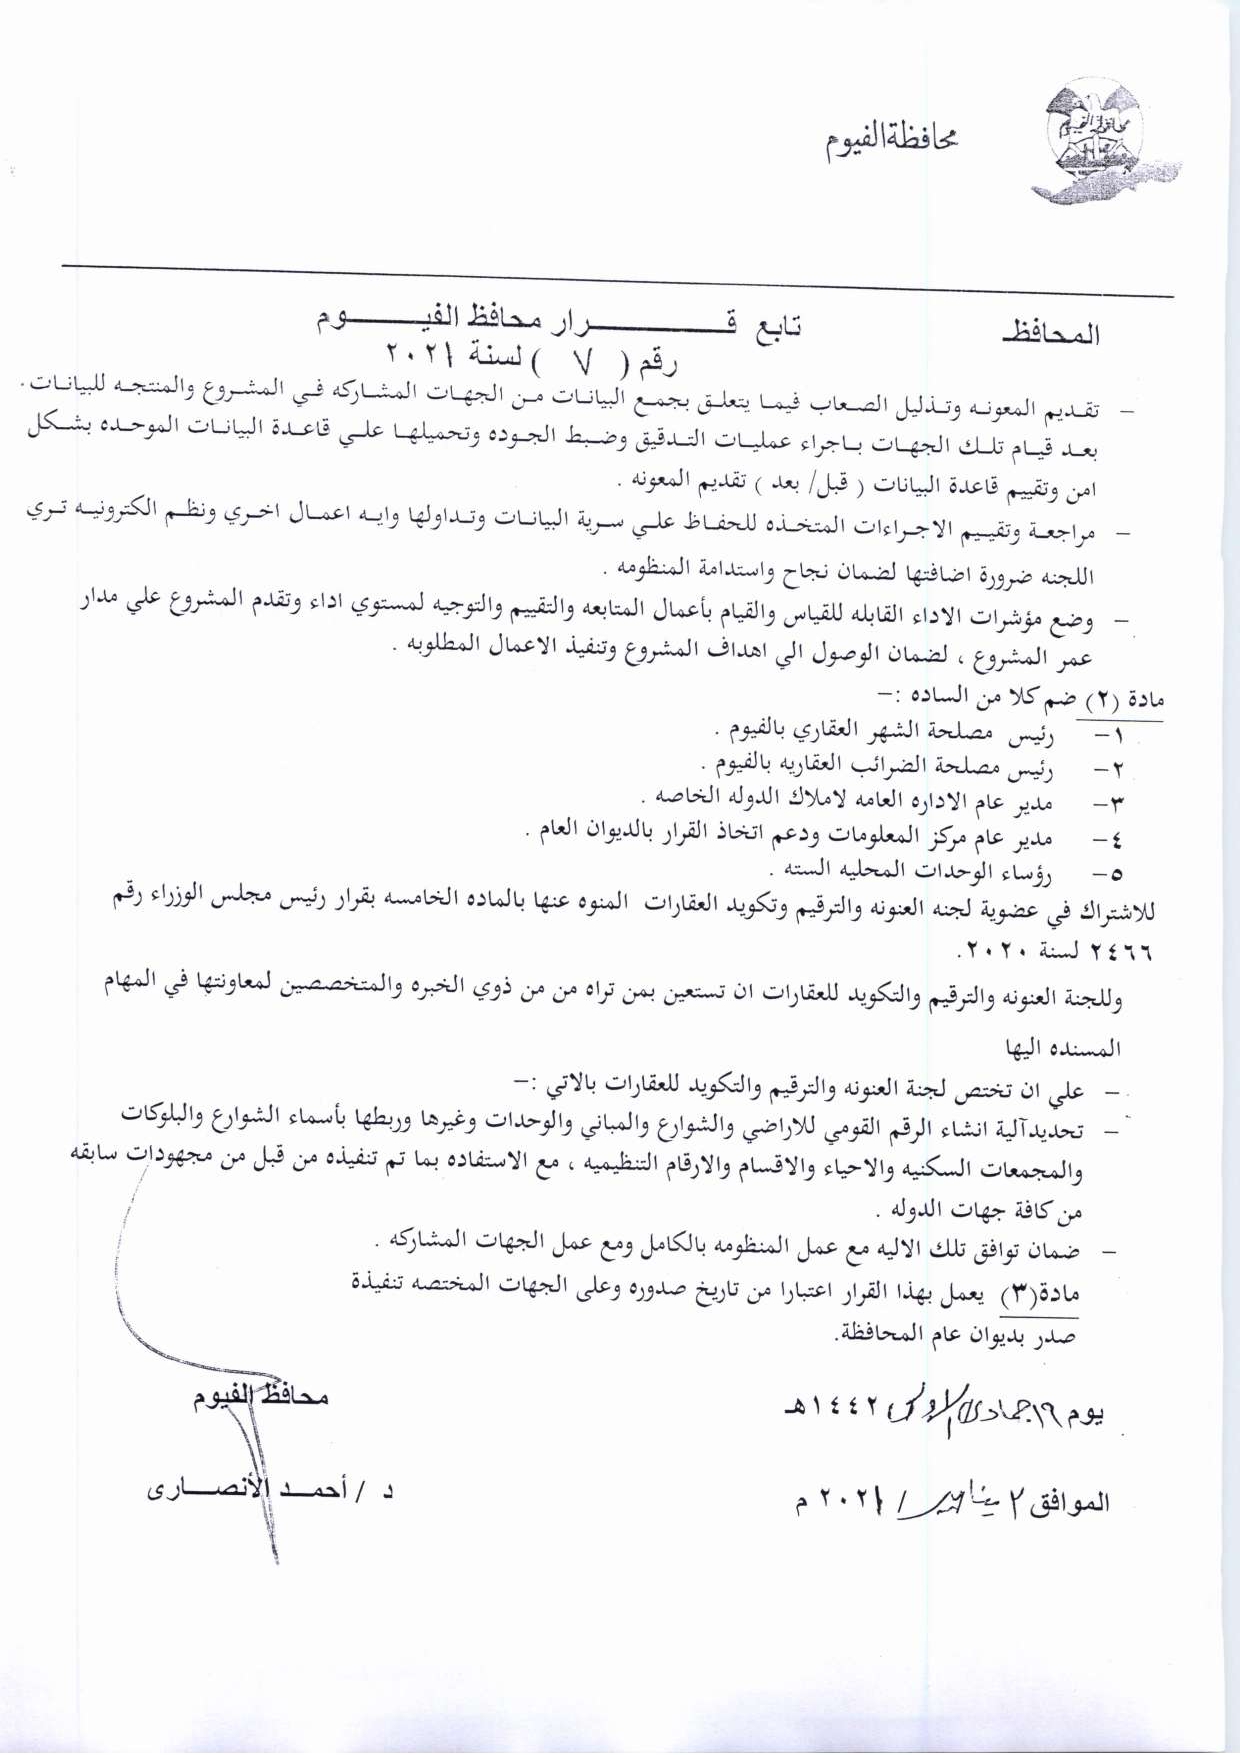 محافظة الفيوم
محافظة الفيوم
المحافظ
تابع قـــــرار محافظ الفيـــــوم
رقم ( ٧ ) لسنة ٢٠٢١
– تقديم المعونه وتذليل الصعاب فيما يتعلق بجمع البيانات من الجهات المشاركه في المشروع والمنتجه للبيانات .
بعد قيام تلك الجهات باجراء عمليات التدقيق وضبط الجوده وتحميلها علي قاعدة البيانات الموحده بشكل
امن وتقييم قاعدة البيانات ( قبل/ بعد ) تقديم المعونه .
– مراجعة وتقييم الاجراءات المتخذه للحفاظ علي سرية البيانات وتداولها وايه اعمال اخري ونظم الكترونيه تري
اللجنه ضرورة اضافتها لضمان نجاح واستدامة المنظومه .
– وضع مؤشرات الاداء القابله للقياس والقيام بأعمال المتابعه والتقييم والتوجيه لمستوي اداء وتقدم المشروع علي مدار
عمر المشروع ، لضمان الوصول الي اهداف المشروع وتنفيذ الاعمال المطلوبه .
مادة (٢) ضم كلا من الساده :–
١– رئيس مصلحة الشهر العقاري بالفيوم .
٢– رئيس مصلحة الضرائب العقاريه بالفيوم .
٣– مدير عام الاداره العامه لاملاك الدوله الخاصه .
٤– مدير عام مركز المعلومات ودعم اتخاذ القرار بالديوان العام .
٥– رؤساء الوحدات المحليه السته .
للاشتراك في عضوية لجنه العنونه والترقيم وتكويد العقارات المنوه عنها بالماده الخامسه بقرار رئيس مجلس الوزراء رقم
٢٤٦٦ لسنة ٢٠٢٠.
وللجنة العنونه والترقيم والتكويد للعقارات ان تستعين بمن تراه من من ذوي الخبره والمتخصصين لمعاونتها في المهام
المسنده اليها
– علي ان تختص لجنة العنونه والترقيم والتكويد للعقارات بالاتي :–
– تحديدآلية انشاء الرقم القومي للاراضي والشوارع والمباني والوحدات وغيرها وربطها بأسماء الشوارع والبلوكات
والمجمعات السكنيه والاحياء والاقسام والارقام التنظيميه ، مع الاستفاده بما تم تنفيذه من قبل من مجهودات سابقه
من كافة جهات الدوله .
– ضمان توافق تلك الاليه مع عمل المنظومه بالكامل ومع عمل الجهات المشاركه .
مادة(٣) يعمل بهذا القرار اعتبارا من تاريخ صدوره وعلى الجهات المختصه تنفيذة
صدر بديوان عام المحافظة.
محافظ الفيوم
يوم ١٩ جمادى الاولى ١٤٤٢هـ
د / أحمـد الأنصـارى
الموافق ٢ يناير / ٢٠٢١ م